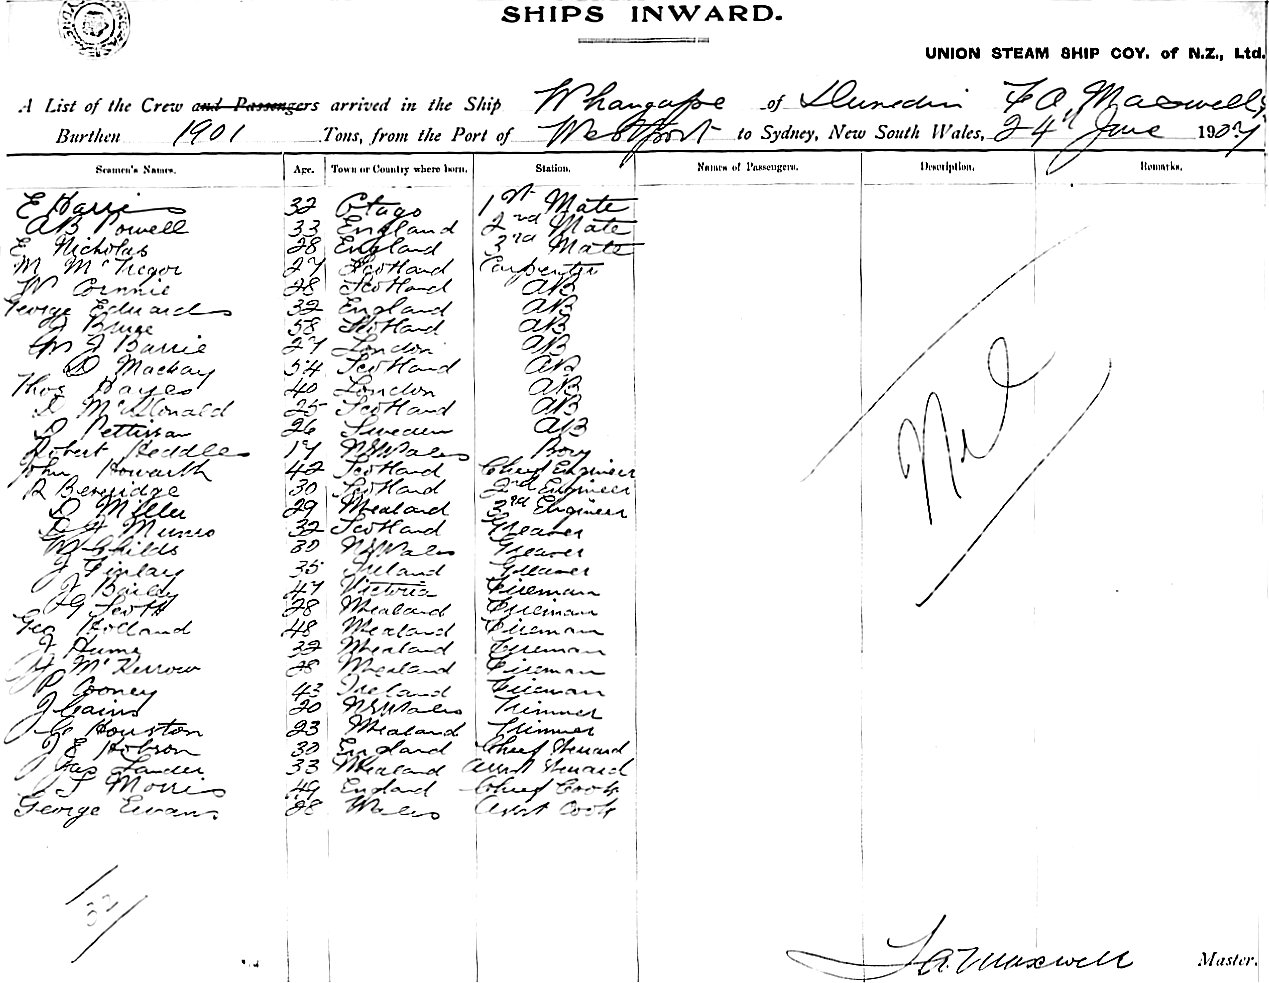 SHIPS INWARD.
UNION STEAM SHIP COY. of N.Z., Ltd.
A List of the Crew and Passengers arrived in the Ship Whangape of Dunedin F A Maxwell
Burthen 1901 Tons, from the Port of Westport to Sydney, New South Wales, 24th June 1907
Seamen's Names. Age. Town or Country where born. Station. Names of Passengers. Description. Remarks.
E Harris 32 Otago 1st Mate
AB Powell 33 England 2nd Mate
E Nicholas 28 England 3rd Mate
M McGregor 27 Scotland Carpenter
W Connie 28 Scotland AB
George Edwards 32 England AB
J Bruce 58 Scotland AB
Wm J Barrie 27 London AB
D Mackay 54 Scotland AB
Thos Hayes 40 London AB
D McDonald 25 Scotland AB
D Pettersan 26 Sweden AB
Robert Heddle 17 NSWales Boy
John Howarth 42 Scotland Chief Engineer
R Berridge 30 Scotland 2nd Engineer
D Miller 29 NZealand 3rd Engineer
D H Munro 32 Scotland Greaser
W Childs 30 NSWales Greaser
J Finlay 35 Ireland Greaser
J Bailey 47 Victoria Fireman
G Scott 28 NZealand Fireman
Geo Holland 48 NZealand Fireman
J Hume 32 NZealand Fireman
H McKerrow 28 NZealand Fireman
P Cooney 43 Ireland Fireman
J Cains 20 NSWales Trimmer
G Houston 23 NZealand Trimmer
J E Hobson 30 England Chief Steward
Jas Lauder 33 NZealand Asst Steward
J S Morris 49 England Chief Cook
George Evans 28 Wales Asst Cook
Nil
F A Maxwell Master.